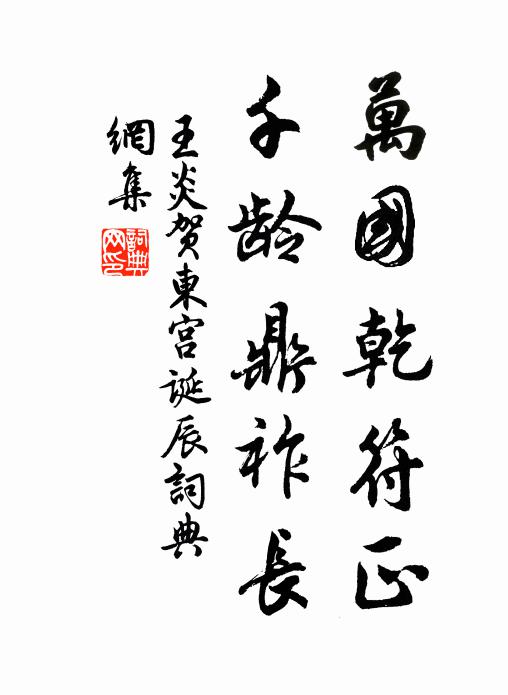 萬國乾符正
千龄鼎祚長
王炎賀東宮誕辰詞典
網集
詞典網印